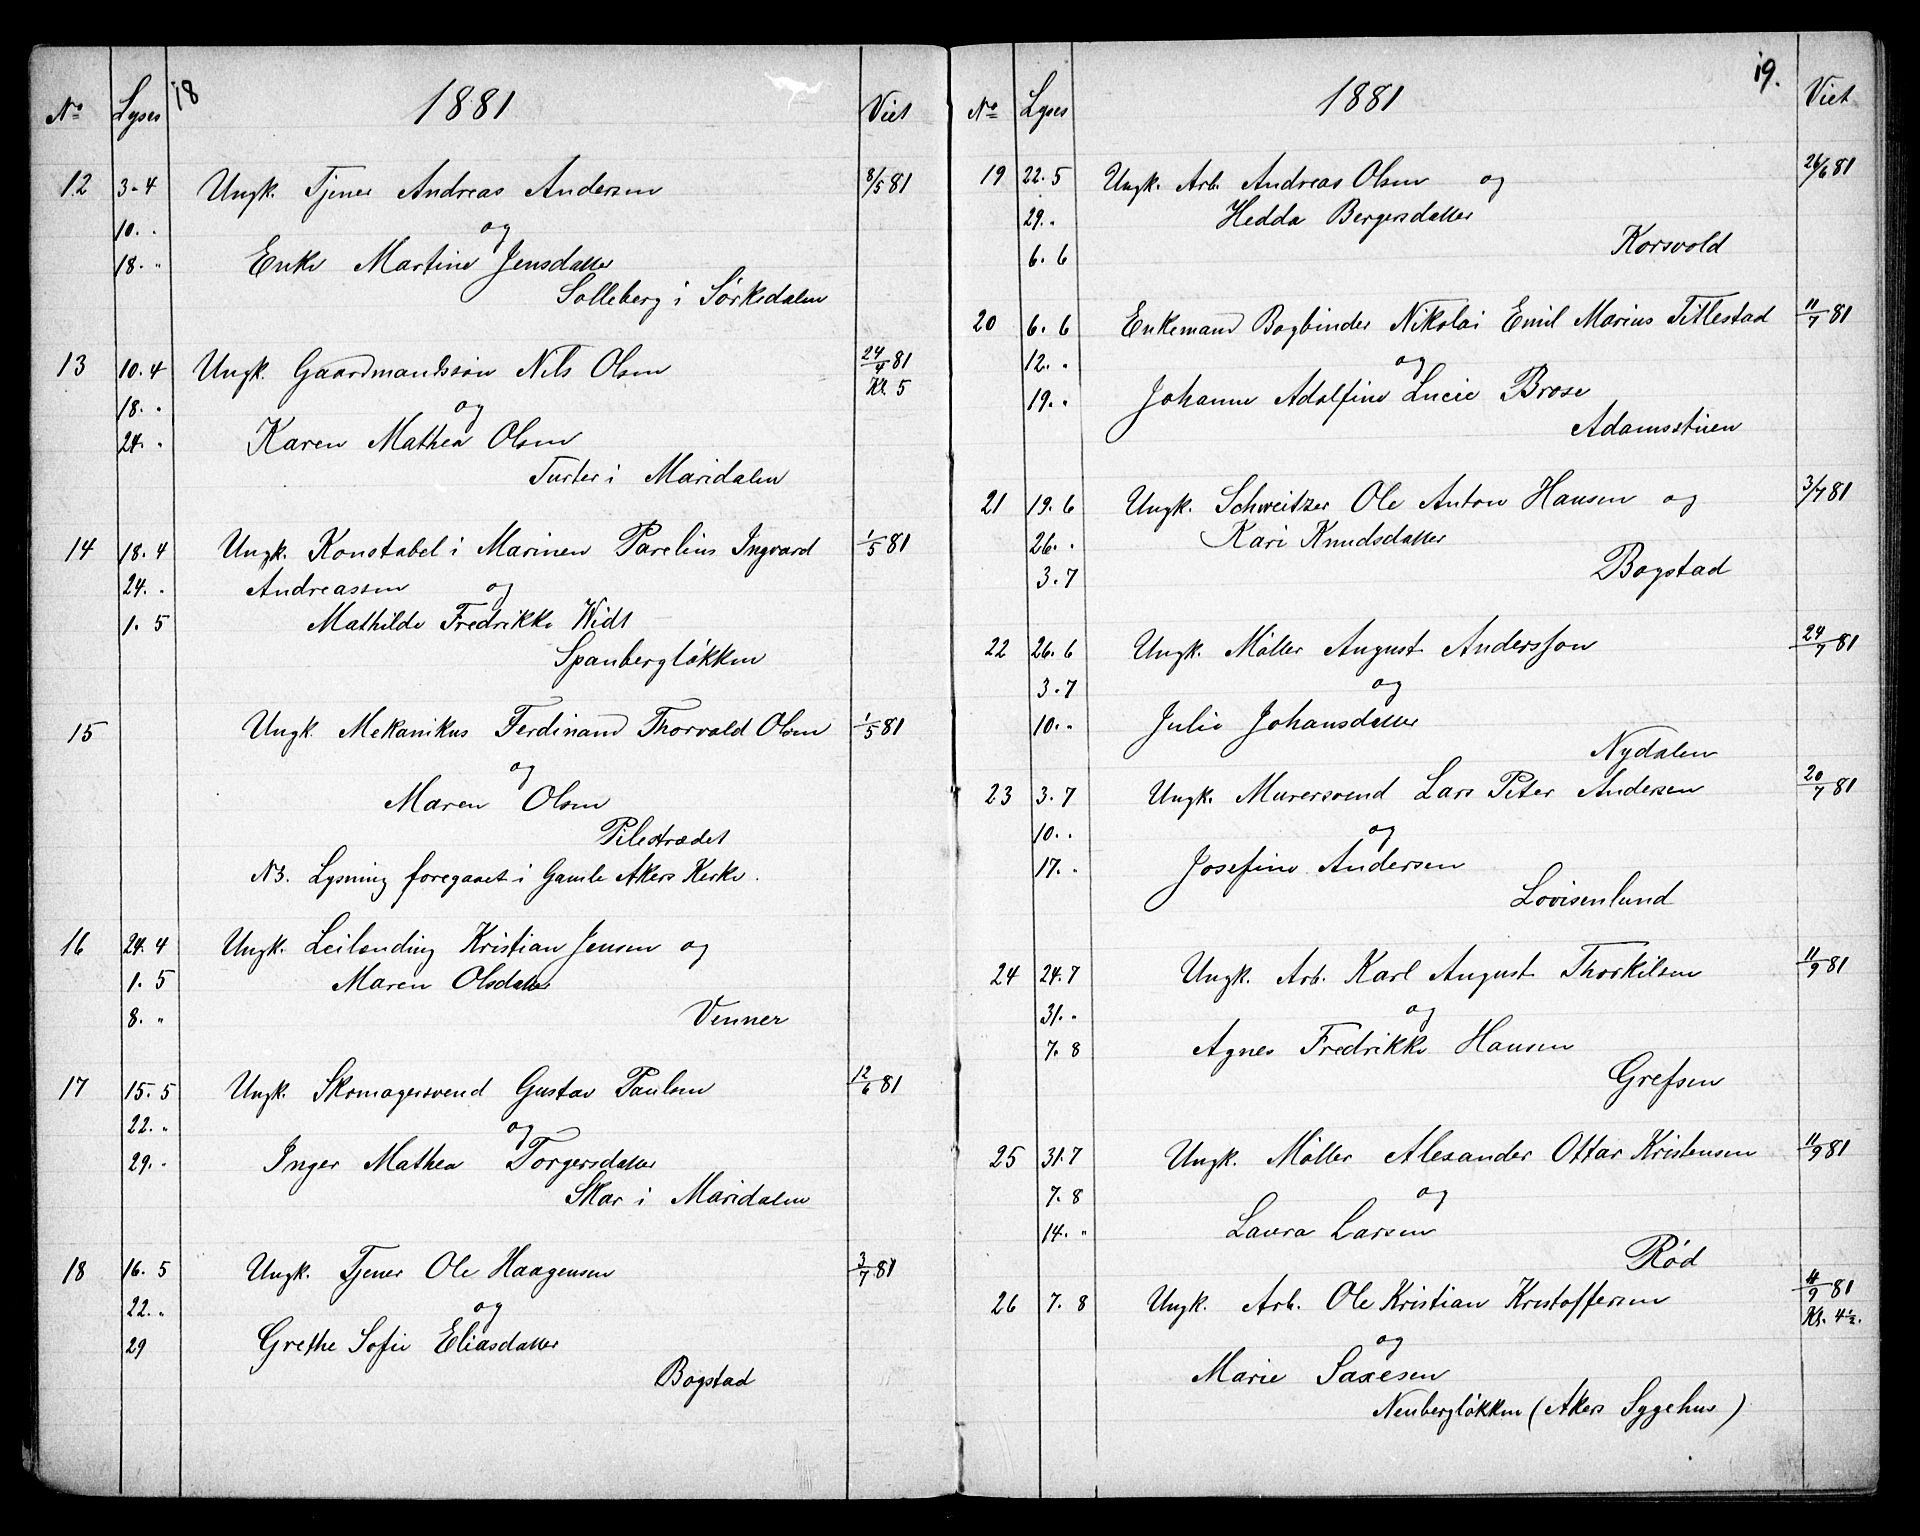 18
No Lyses 1881 Viet
12 3-4 Ungk. Tjener Andreas Andersen 8/5 81
10. " og
18. " Enke Martine Jensdatter
Solleberg i Sørkedalen
13 10.4 Ungk. Gaardmandssøn Nils Olsen 24/4 81
18. " og Kl. 5
24. " Karen Mathea Olsen
Turter i Maridalen
14 18.4 Ungk. Konstabel i Marinen Parelius Ingvard 1/5 81
24. " Andreassen og
1. 5 Mathilde Fredrikke Widt
Spanbergløkken
15 Ungk. Mekanikus Ferdinand Thorvald Olsen 1/5 81
og
Maren Olsen
Pilestrædet
NB. Lysning foregaaet i Gamle Akers Kerke.
16 24.4 Ungk. Leilending Kristian Jensen og
1. 5 Maren Olsdatter
8. " Venner
17 15.5 Ungk. Skomagersvend Gustav Paulsen 12/6 81
22. " og
29. " Inger Mathea Torgersdatter
Skar i Maridalen
18 16.5 Ungk. Tjener Ole Haagensen 3/7 81
22. " og
29 Grethe Sofie Eliasdatter
Bogstad
19.
No Lyses 1881 Viet
19 22.5 Ungk. Arb. Andreas Olsen og 26/6 81
29. " Hedda Bergersdatter
6. 6 Korsvold
20 6. 6 Enkemand Bogbinder Nikolai Emil Marius Titlestad 11/7 81
12. " og
19. " Johanne Adolfine Lucie Brose
Adamsstuen
21 19.6 Ungk. Schweitzer Ole Anton Hansen og 3/7 81
26. " Kari Knudsdatter
3. 7 Bogstad
22 26.6 Ungk. Møller August Andersson 24/7 81
3. 7 og
10. " Julie Johansdatter
Nydalen
23 3. 7 Ungk. Murersvend Lars Peter Andersen 20/7 81
10. " og
17. " Josefine Andersen
Lovisenlund
24 24.7 Ungk. Arb. Karl August Thorkilsen 11/9 81
31. " og
7. 8 Agnes Fredrikke Hansen
Grefsen
25 31.7 Ungk. Møller Alexander Ottar Kristensen 11/9 81
7. 8 og
14. " Laura Larsen
Rød
26 7. 8 Ungk. Arb. Ole Kristian Kristoffersen 4/9 81
og Kl. 4 1/2.
Marie Saxesen
Neubergløkken (Akers Sygehus)